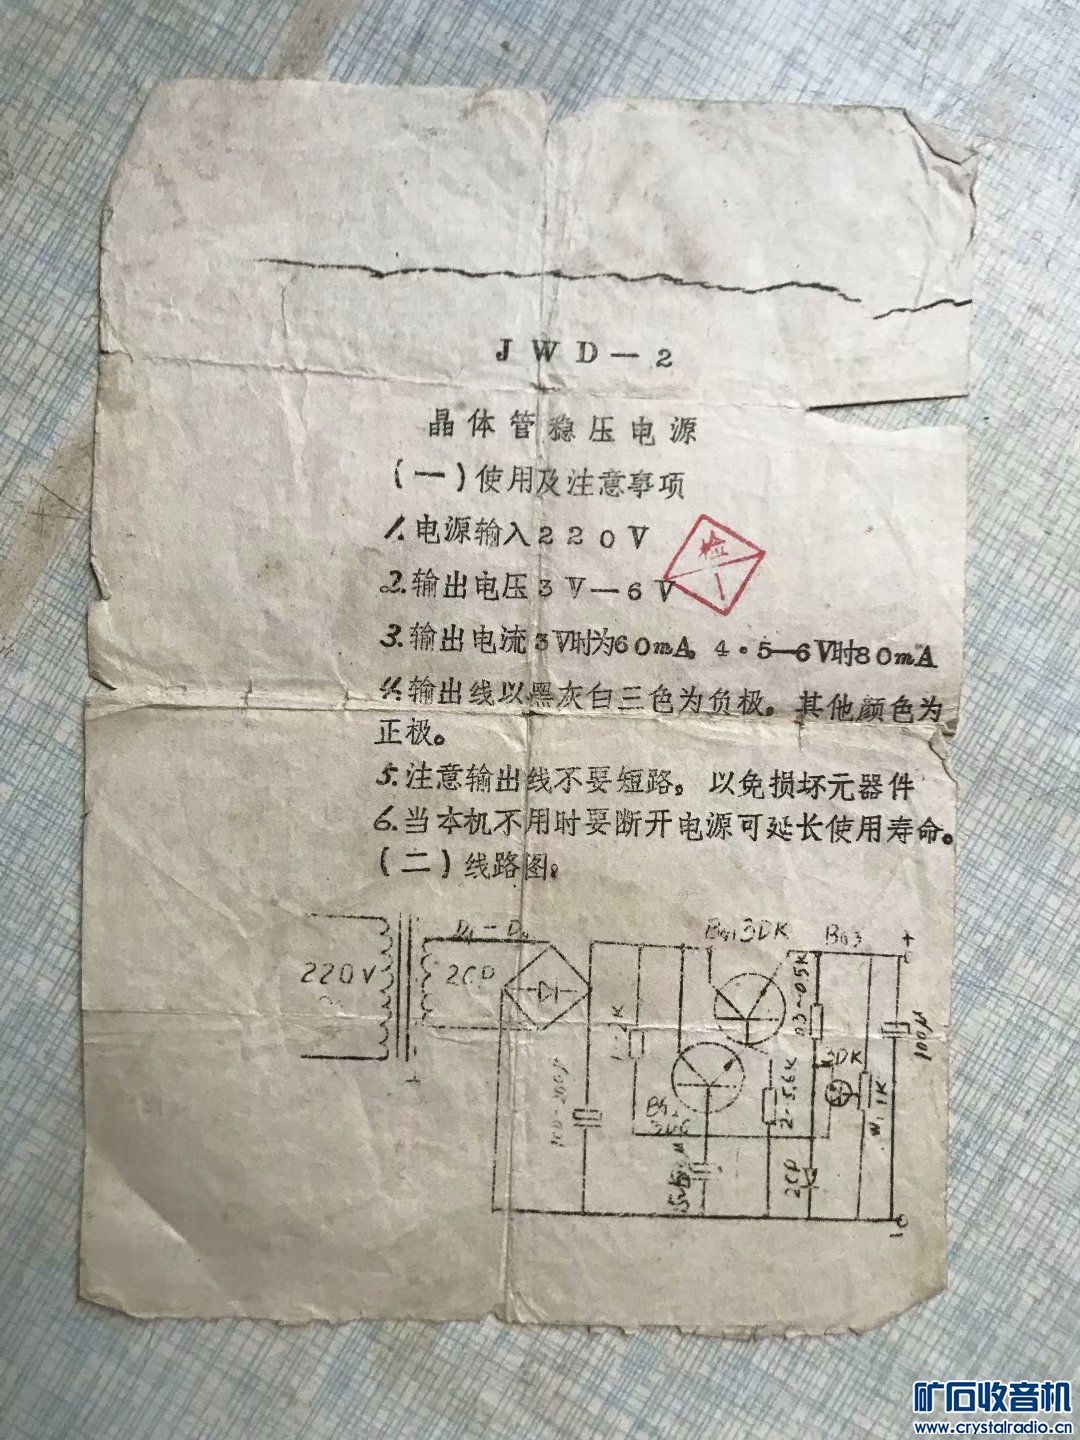 JWD—2
晶体管稳压电源
(一)使用及注意事项
1.电源输入220V
检
1
2.输出电压3V—6V
3.输出电流3V时为60mA。4·5—6V时80mA
4.输出线以黑灰白三色为负极。其他颜色为
正极。
5.注意输出线不要短路。以免损坏元器件
6.当本机不用时要断开电源可延长使用寿命。
(二)线路图:
D1-D4
2CP
220V
Bg1 3DK
Bg3
+
1-2K
0.3-0.5K
100μ
3DK
100-200μ
Bg2
3DG
2-5.6K
W1 1K
2CP
-
矿石收音机
www.crystalradio.cn